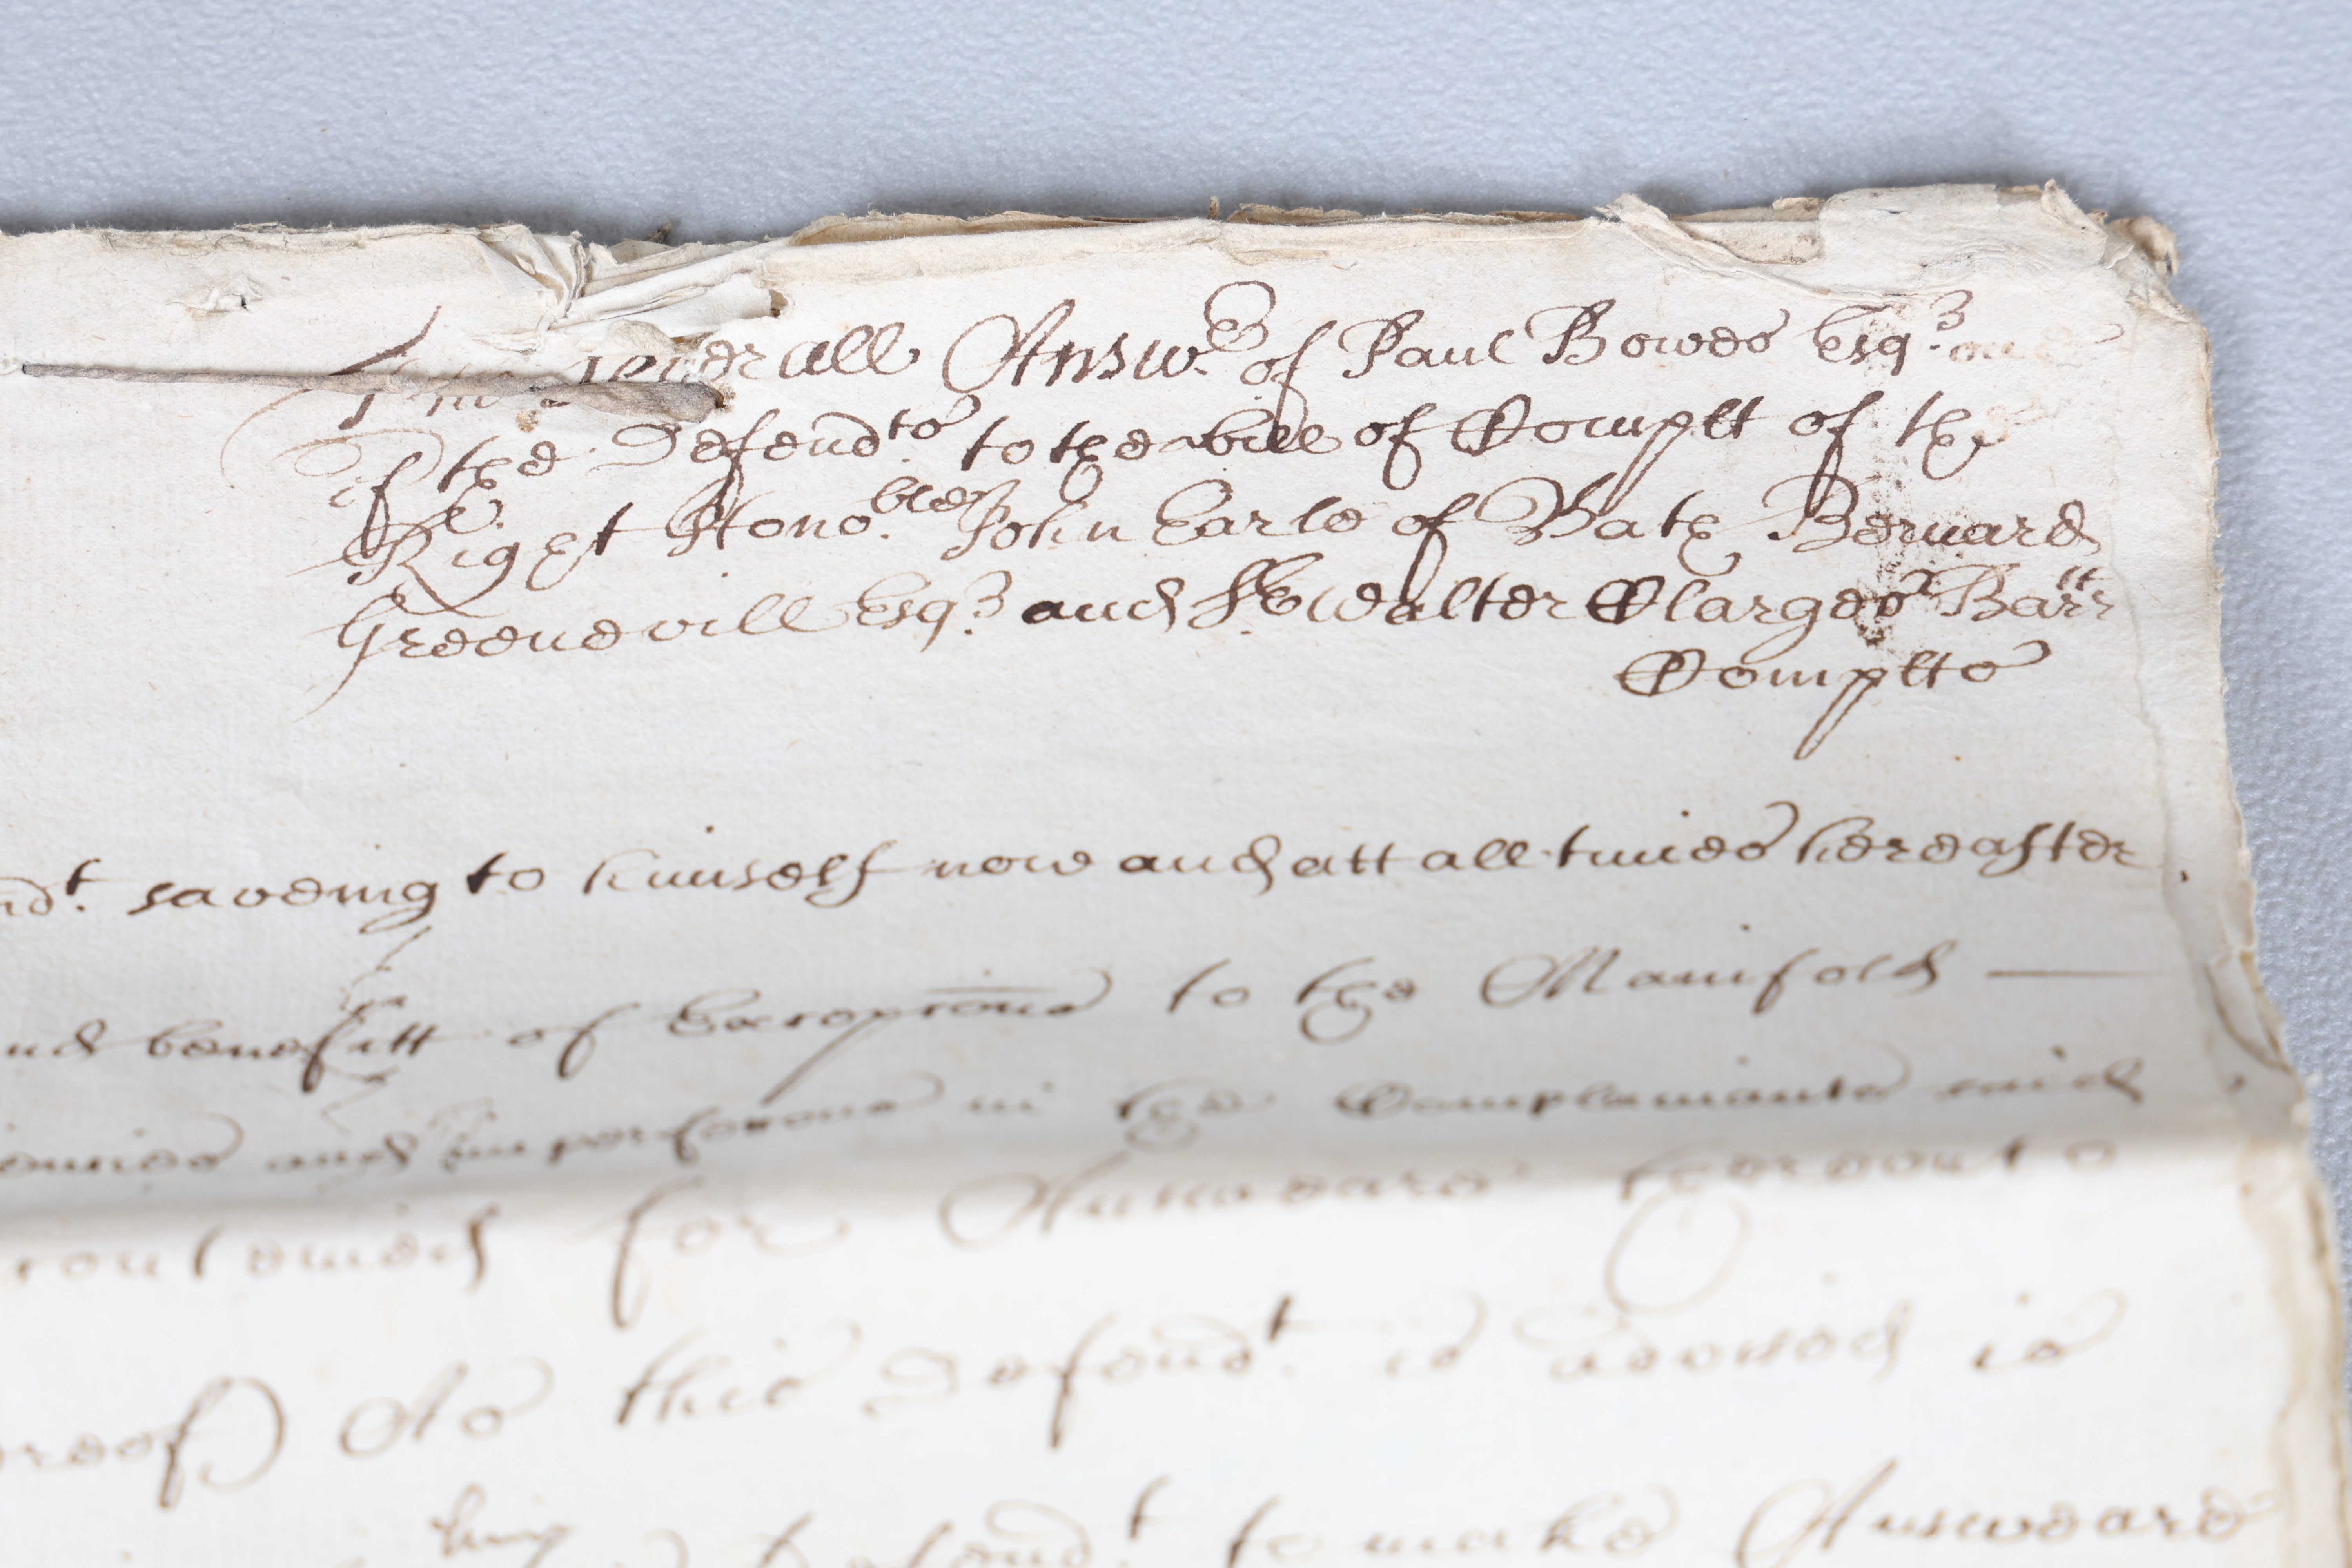 The severall Answe.r of Paul Bowes Esq.r one
of the Defend.ts to the bill of Complt of the
Right Hono.ble John Earle of Bath Bernard
Greenevill Esq.r and S.r Walter Clarges Barr.tt
Complts
nd.t saveing to himself now and att all times hereafter
nd benefitt of Excepcons to the Manifold
and imperfeccons in the Complainants said
conteined for Answeare thereunto
hereof) As this Defend.t is advised is
to make Answeare